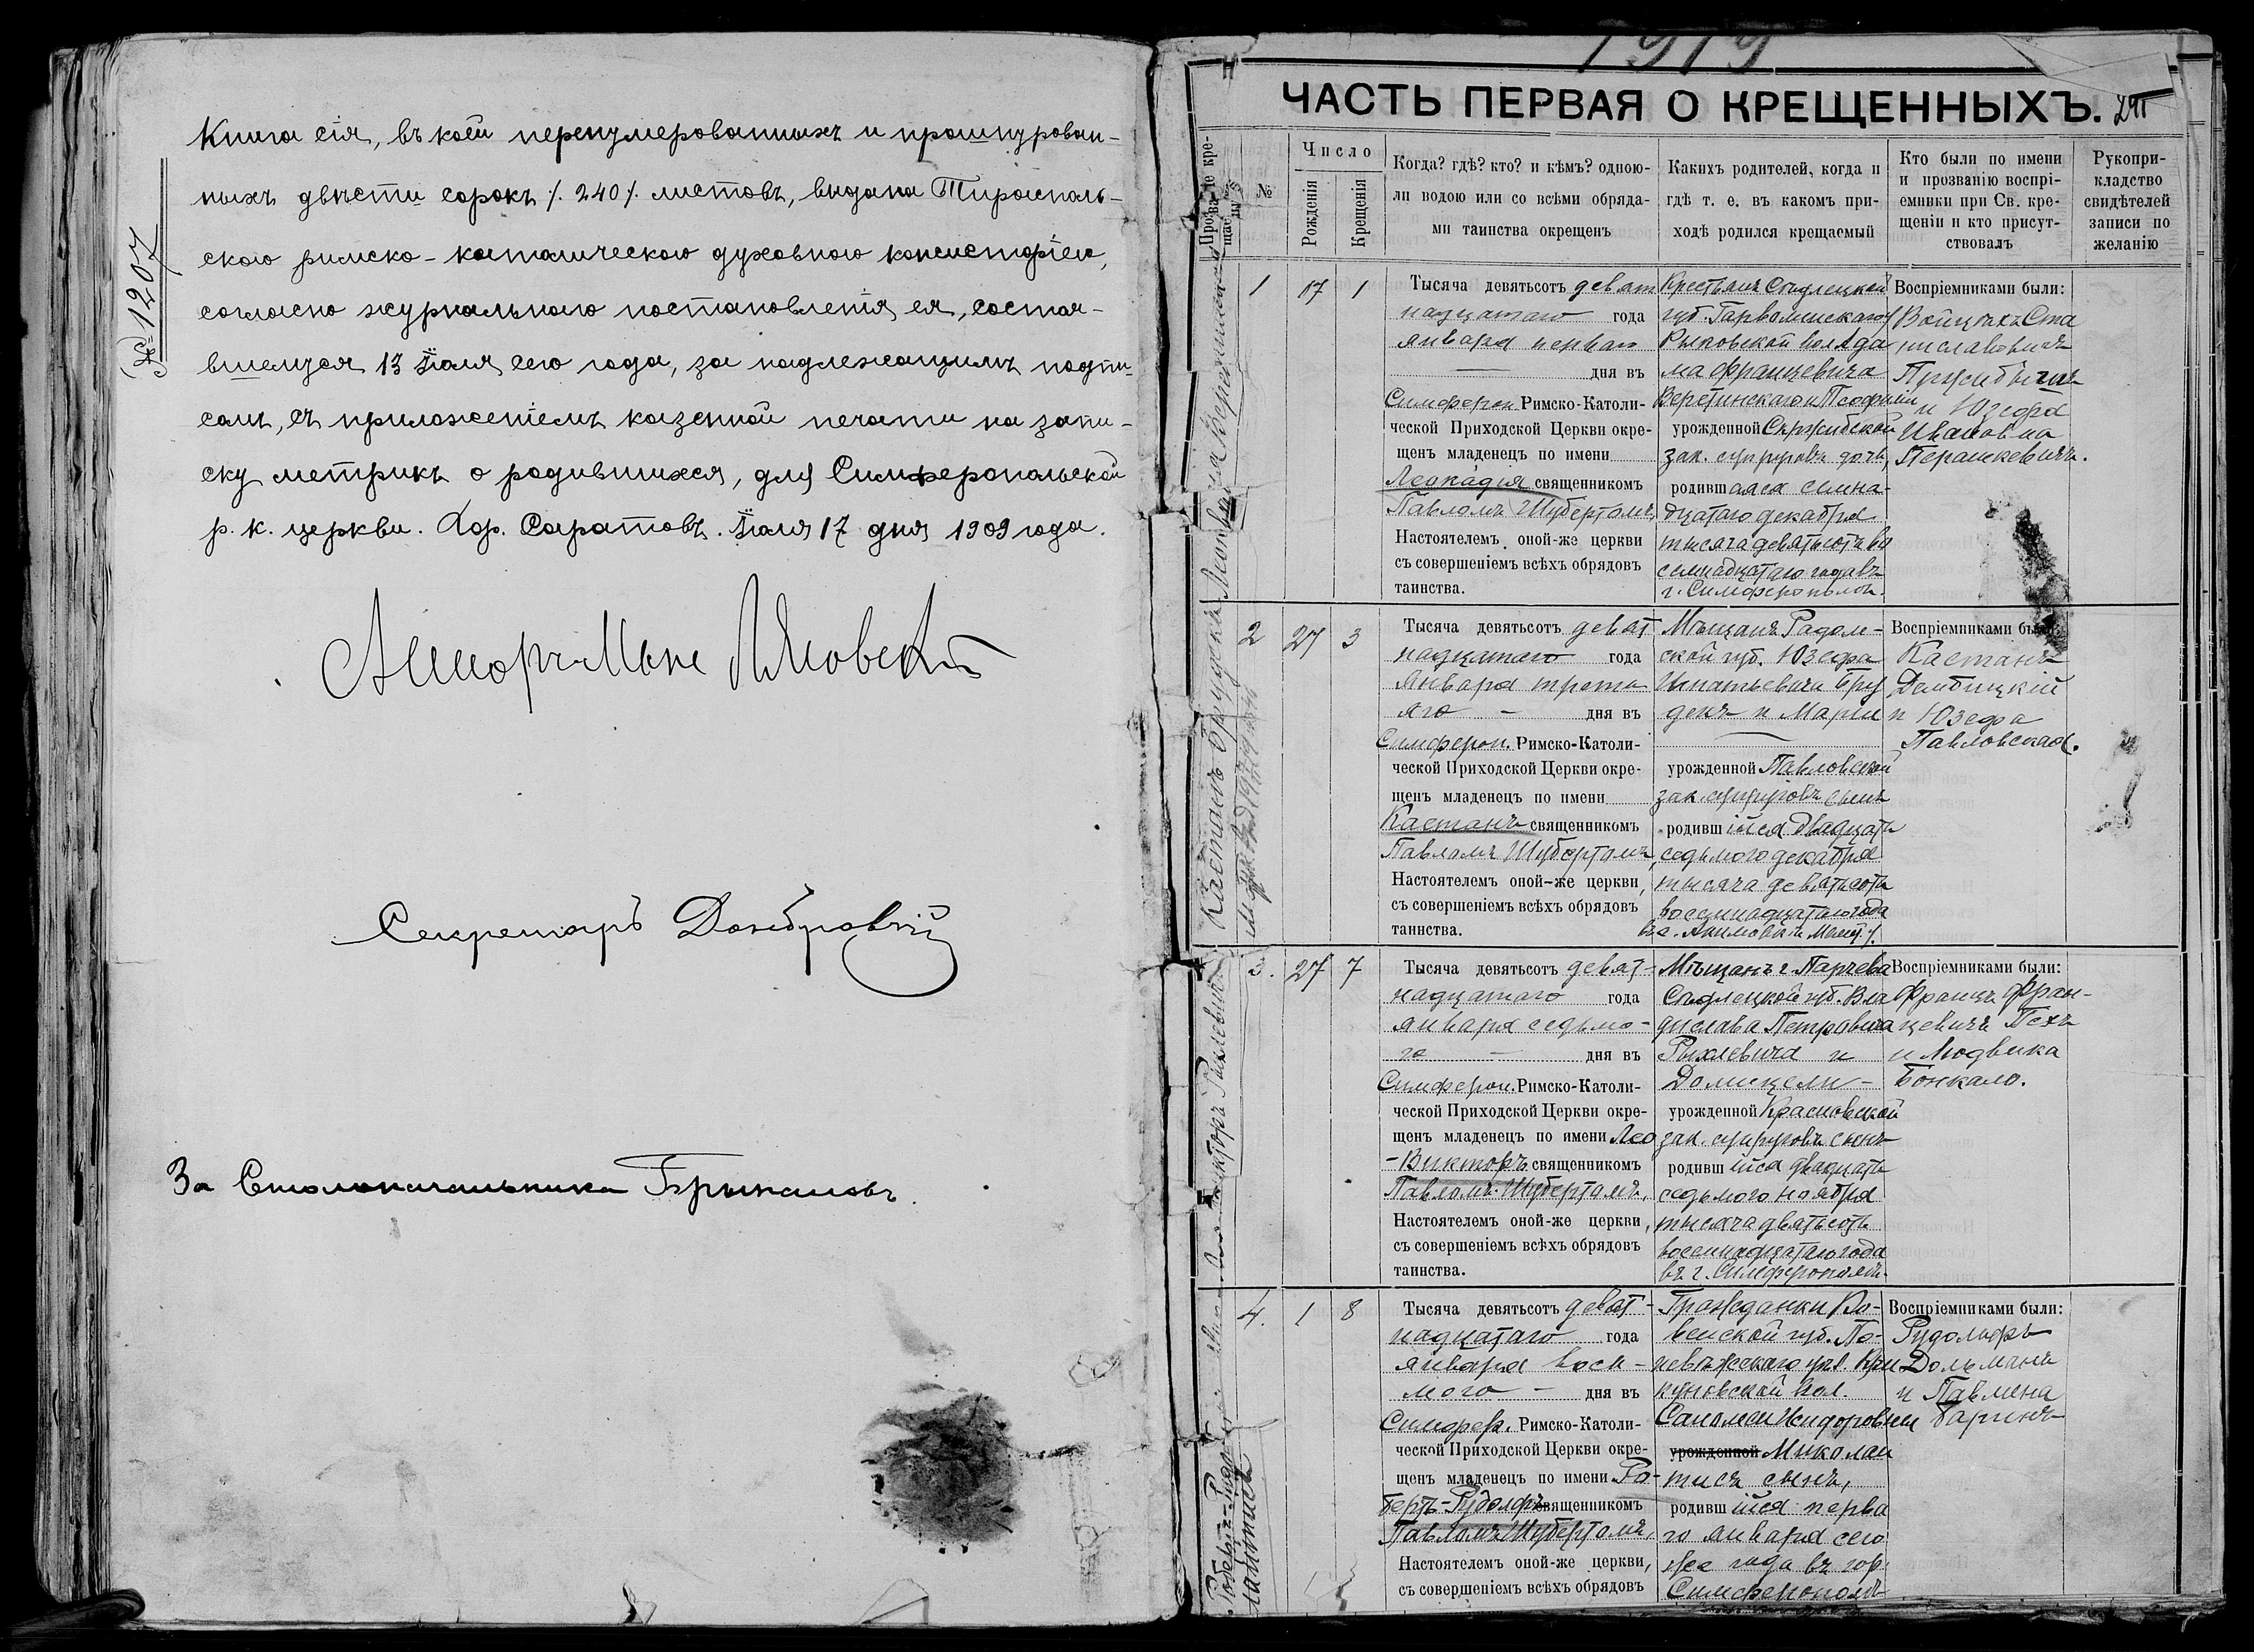 № 1207
Книга сія, въ коей перенумерованныхъ и прошнурован-
ныхъ двѣсти сорокъ /. 240 /. листовъ, выдана Тирасполь-
скою римско-католическою духовною консисторіею,
согласно журнальнаго постановленія ея, состоя-
вшемуся 13 Іюля сего года, за надлежащимъ подпи-
сомъ, съ приложеніемъ казенной печати на запи-
ску метрикъ о родившихся, для Симферопольской
р. к. церкви. Гор. Саратовъ. Іюля 17 дня 1909 года.
Секретарь Домбровскій
За Столоначальника
1919
ЧАСТЬ ПЕРВАЯ О КРЕЩЕННЫХЪ.
№
Число
Рожденія
Крещенія
Когда? гдѣ? кто? и кѣмъ? одною-
ли водою или со всѣми обряда-
ми таинства окрещенъ
Какихъ родителей, когда и
гдѣ т. е. въ какомъ при-
ходѣ родился крещаемый
Кто были по имени
и прозванію воспрі-
емники при Св. кре-
щеніи и кто присут-
ствовалъ
Рукопри-
кладство
свидѣтелей
записи по
желанію
1 17 1
Тысяча девятьсотъ девят
надцатаго года
января перваго
дня въ
Симфероп. Римско-Католи-
ческой Приходской Церкви окре-
щенъ младенецъ по имени
Леокадія священникомъ
Павломъ Шубертомъ,
Настоятелемъ оной-же церкви
съ совершеніемъ всѣхъ обрядовъ
таинства.
Крестьянъ Сѣдлецкой
губ. Гарволинскаго у
Рыковской вол. Ада
ма Францевича
и Теофили
урожденной Скржибской
зак. супруговъ дочь,
родившаяся семна-
дцатаго декабря
тысяча девятьсотъ во
семнадцатаго года въ
г. Симферополѣ.
Воспріемниками были:
Войцѣхъ Ста
ниславовичъ
и Юзефа
Ивановна
2 27 3
Тысяча девятьсотъ девят
надцатаго года
Января треть
яго - дня въ
Симфероп. Римско-Католи-
ческой Приходской Церкви окре-
щенъ младенецъ по имени
Каетанъ священникомъ
Павломъ Шубертомъ,
Настоятелемъ оной-же церкви,
съ совершеніемъ всѣхъ обрядовъ
таинства.
Мѣщанъ Радом-
ской губ. Юзефа
Игнатьевича Бру
декъ и Маріи
урожденной Павловской
зак. супруговъ сынъ
родившійся двадцать
седьмого декабря
тысяча девятьсотъ
восемнадцатаго года
Воспріемниками были:
Каетанъ
Дембицкій
и Юзефа
Павловская.
3. 27 7
Тысяча девятьсотъ девят-
надцатаго года
января седьмо-
го - дня въ
Симфероп. Римско-Католи-
ческой Приходской Церкви окре-
щенъ младенецъ по имени Лео
-Викторъ священникомъ
Павломъ Шубертомъ,
Настоятелемъ оной-же церкви,
съ совершеніемъ всѣхъ обрядовъ
таинства.
Мѣщанъ г. Парчева
Сѣдлецкой губ. Вла
дислава Петровича
Рыхлевича и
Домицели-
урожденной Красновской
зак. супруговъ сынъ
родившійся двадцать
седьмого ноября
тысяча девятьсотъ
восемнадцатаго года
въ г. Симферополѣ.
Воспріемниками были:
Францъ Фран-
цевичъ Пехъ
и Людвика
Бонкало.
4. 1 8
Тысяча девятьсотъ девят-
надцатаго года
января вось-
мого - дня въ
Симфер. Римско-Католи-
ческой Приходской Церкви окре-
щенъ младенецъ по имени Ро-
бертъ-Рудольфъ священникомъ
Павломъ Шубертомъ,
Настоятелемъ оной-же церкви,
съ совершеніемъ всѣхъ обрядовъ
Гражданки Ко-
венской губ. По-
невѣжскаго уѣз.
вол.
Саломеи Исидоровны
урожденной Миколаи
тисъ сынъ,
родившійся перва
го января сего
же года въ гор.
Симферополѣ
Воспріемниками были:
Рудольфъ
Дольманъ
и